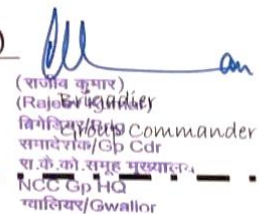 )
(राजीव कुमार)
(Rajeev Kumar)
Brigadier
ब्रिगेडियर/Brig
Group Commander
समादेशक/Gp Cdr
रा.कै.को.समूह मुख्यालय
NCC Gp HQ
ग्वालियर/Gwalior